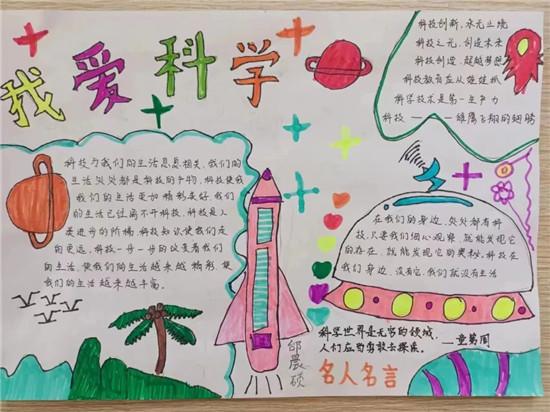 我爱科学
科技创新，永无止境
科技之光，创造未来
科技创造，超越梦想
科技教育应从娃娃抓
科学技术是第一生产力
科技——雄鹰飞翔的翅膀
科技与我们的生活息息相关，我们的
生活处处都是科技的产物，科技使我
我们的生活更加精彩美好，我们
的生活已经离不开科技，科技是人
类进步的阶梯，科技知识使我们走
向更远，科技一步一步的改变着我们
的生活，使我们的生活越来越精彩，使
我们的生活越来越丰富。
在我们的身边，处处都有科
技，只要我们细心观察，就能发现它
的存在，就能发现它的奥秘，科技在
我们身边，没有它，我们就没有生活
科学世界是无穷的领域，
人们应当勇敢去探索。
——童第周
名人名言
邰晨硕